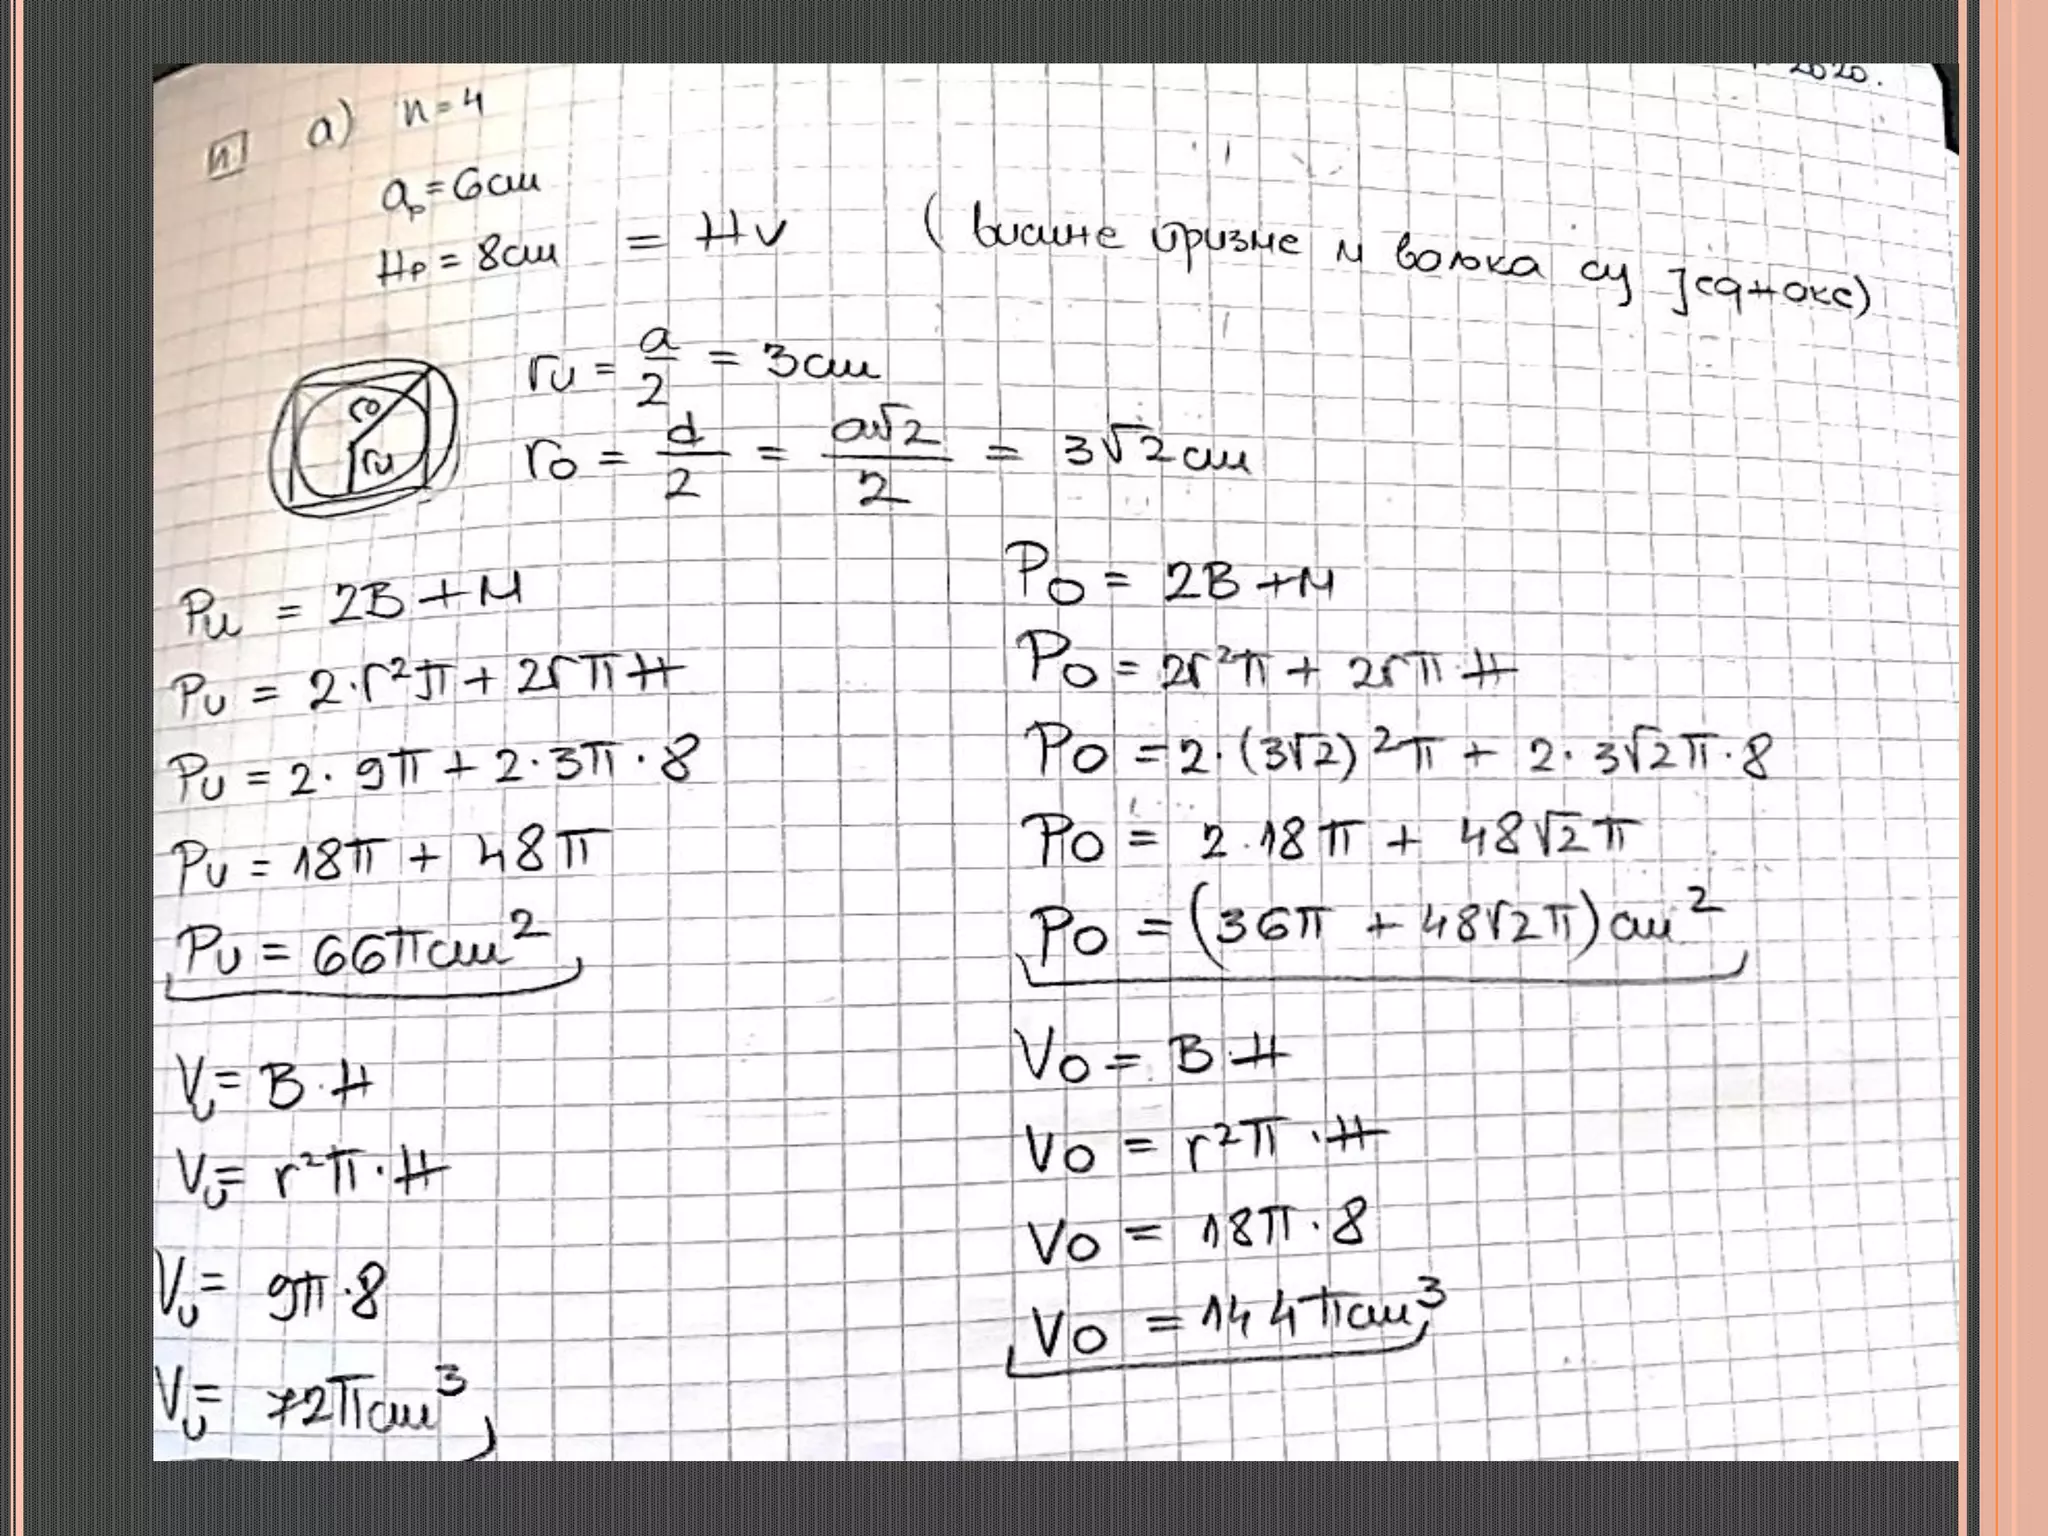 2020.
а) n=4
aₚ=6cm
Hₚ=8cm = Hv (висине призме и ваљка су једнаке)
ru = a/2 = 3cm
ro = d/2 = a√2/2 = 3√2cm
ro
ru
Pu = 2B+M
Pu = 2·r²π+2rπH
Pu = 2·9π+2·3π·8
Pu = 18π+48π
Pu = 66πcm²
Vu = B·H
Vu = r²π·H
Vu = 9π·8
Vu = 72πcm³
Po = 2B+M
Po = 2r²π+2rπ·H
Po = 2·(3√2)²π+2·3√2π·8
Po = 2·18π+48√2π
Po = (36π+48√2π)cm²
Vo = B·H
Vo = r²π·H
Vo = 18π·8
Vo = 144πcm³